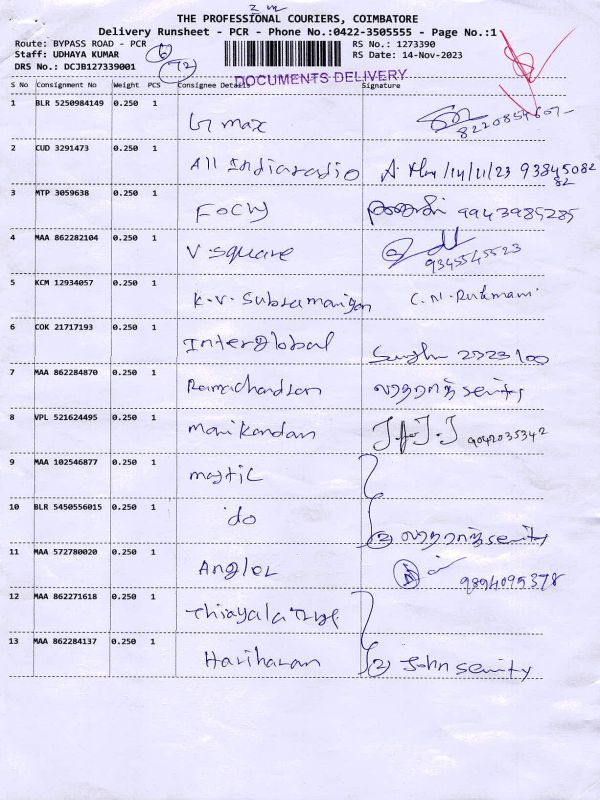 2 m
THE PROFESSIONAL COURIERS, COIMBATORE
Delivery Runsheet - PCR - Phone No.:0422-3505555 - Page No.:1
Route: BYPASS ROAD - PCR 6 RS No.: 1273390
Staff: UDHAYA KUMAR RS Date: 14-Nov-2023
DRS No.: DCJB127339001 72
DOCUMENTS DELIVERY
S No Consignment No Weight PCS Consignee Details Signature
1 BLR 5250984149 0.250 1 G max
2 CUD 3291473 0.250 1 All India radio 14/11/23 9384508282
3 MTP 3059638 0.250 1 Focus 9943985285
4 MAA 862282104 0.250 1 V. square 9345545523
5 KCM 12934057 0.250 1 K.V. Subramanian C.N. Rukmani
6 COK 21717193 0.250 1 Interglobal
7 MAA 862284870 0.250 1 Ramachandran
8 VPL 521624495 0.250 1 manikandan 9042035342
9 MAA 102546877 0.250 1
10 BLR 5450556015 0.250 1 do 2
11 MAA 572780020 0.250 1 9894095378
12 MAA 862271618 0.250 1
13 MAA 862284137 0.250 1 Hariharan 2 John